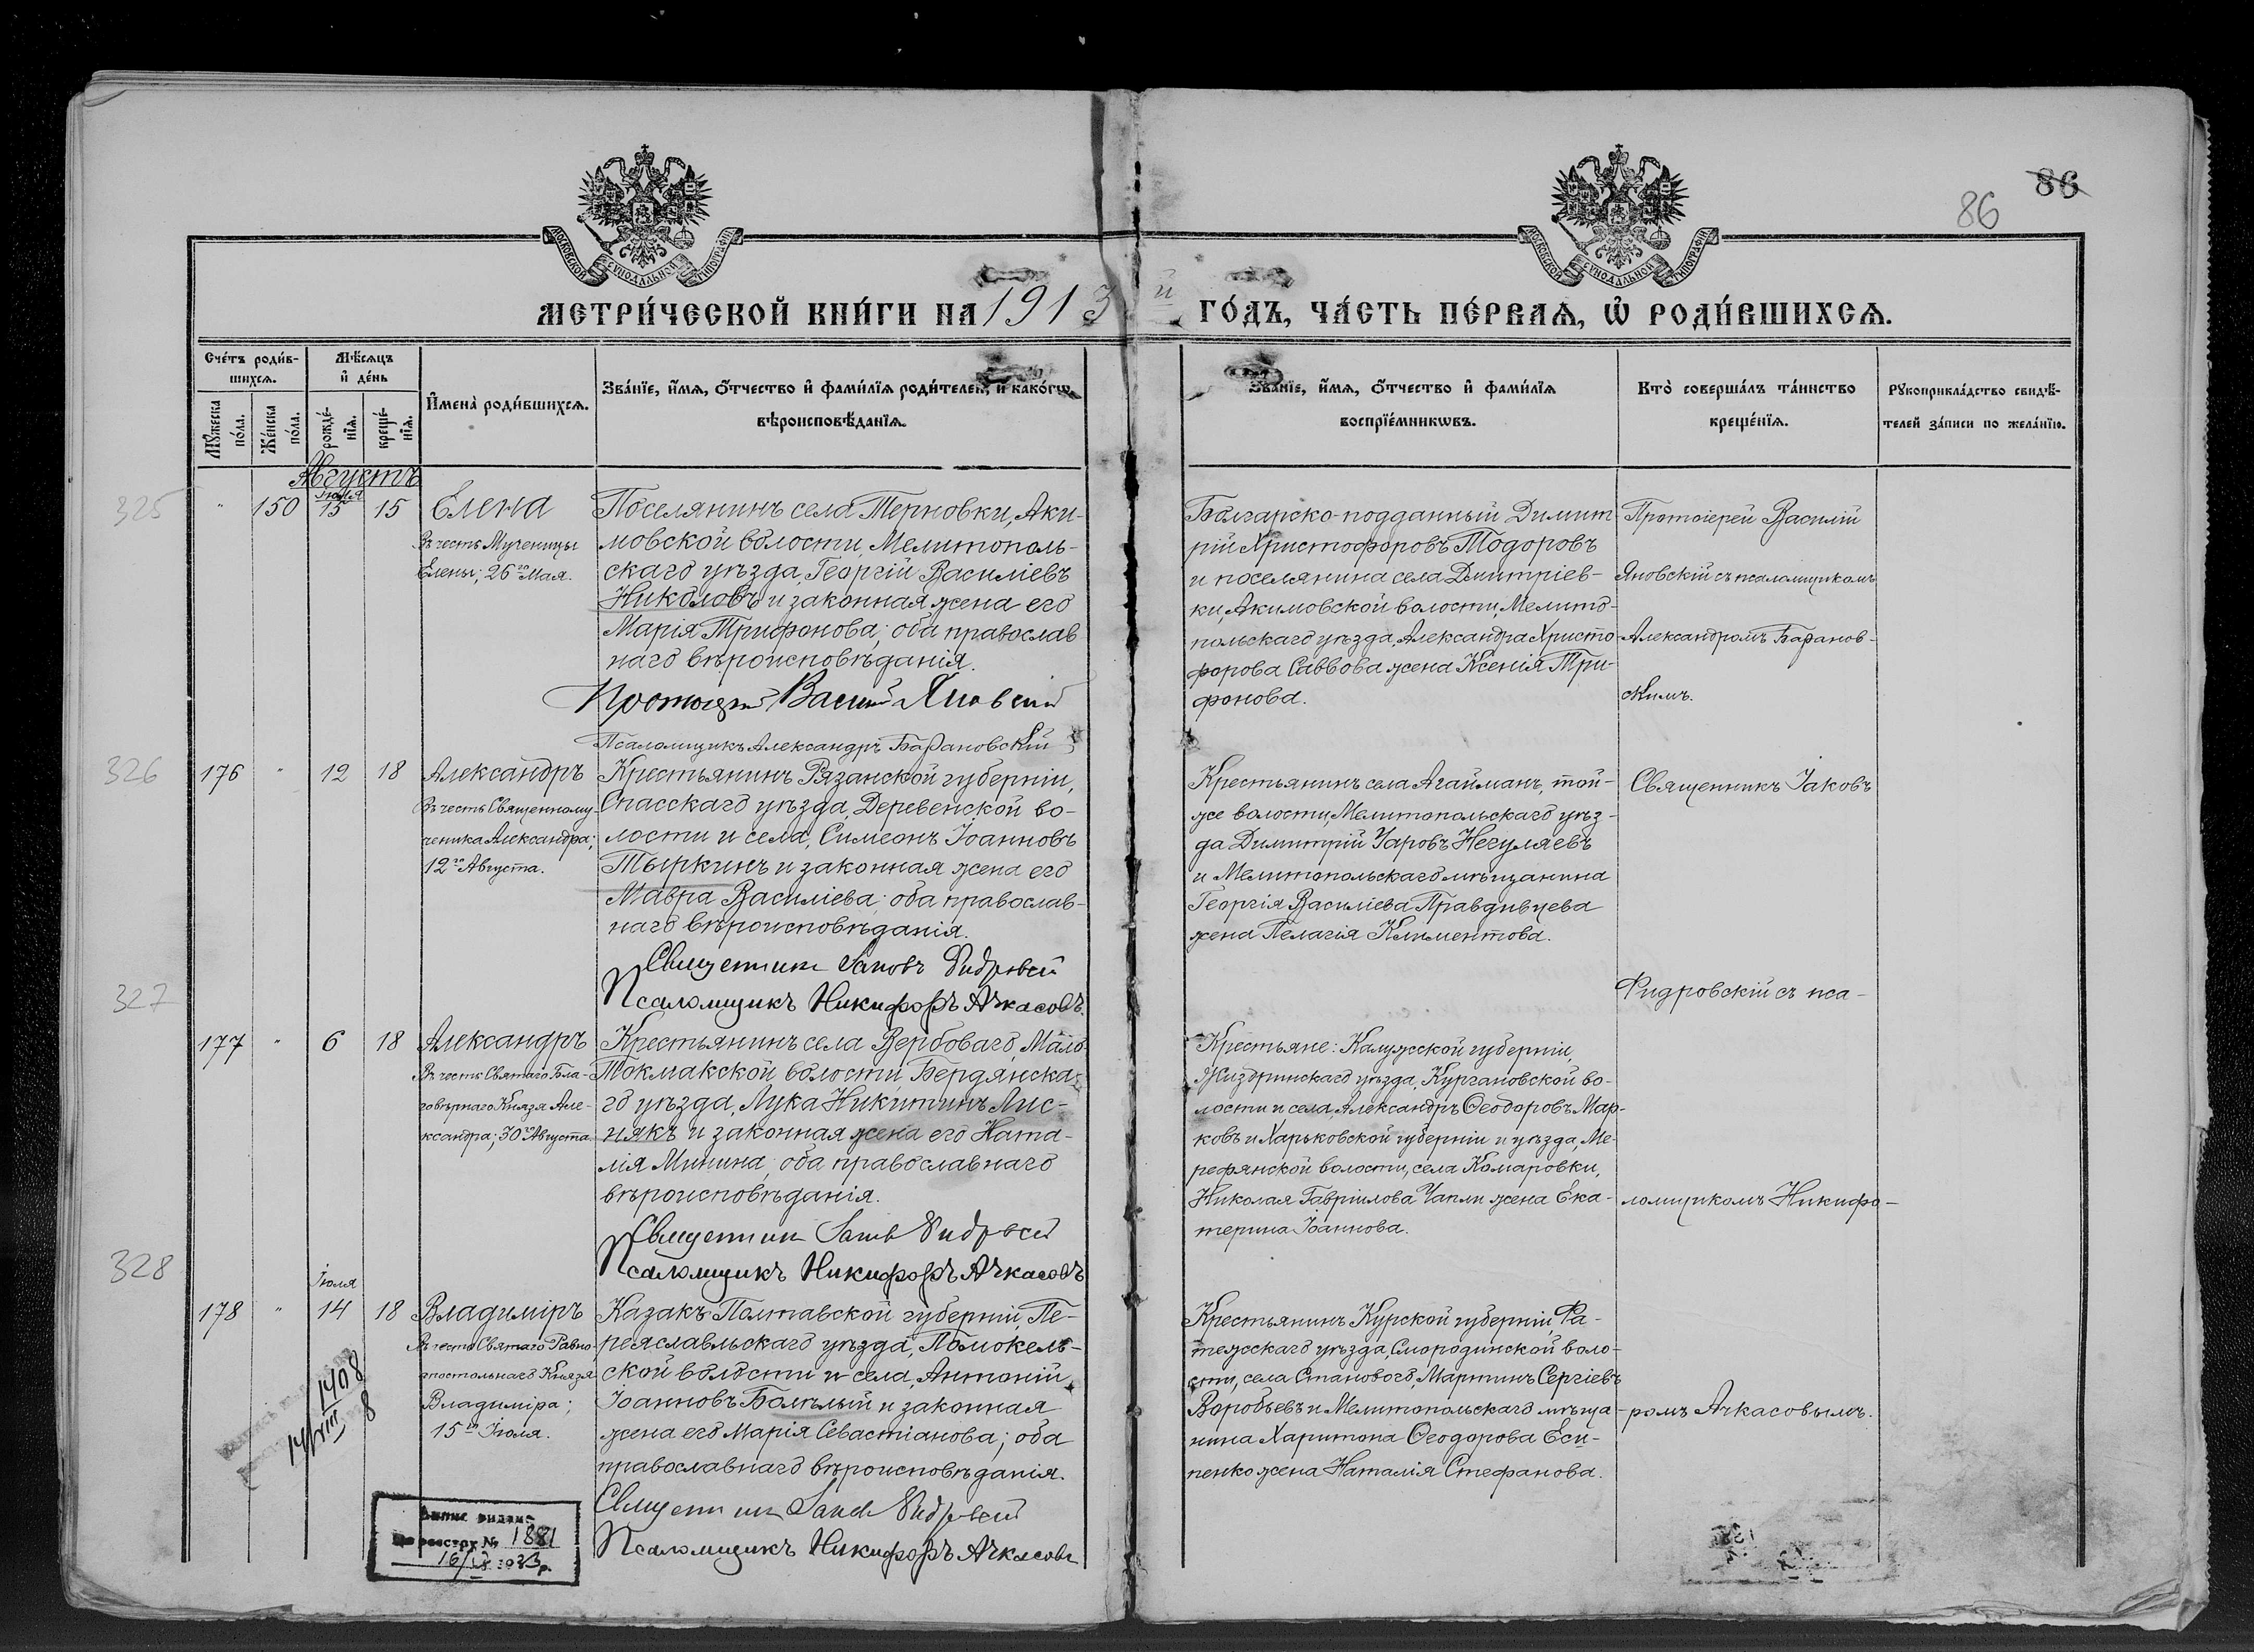 86
86
МОСКОВСКОЙ СѴНОДАЛЬНОЙ ТИПОГРАФІИ
МОСКОВСКОЙ СѴНОДАЛЬНОЙ ТИПОГРАФІИ
МЕТРИ́ЧЕСКОЙ КНИ́ГИ НА 1913 й ГО́ДЪ, ЧА́СТЬ ПЕ́РВАѦ, Ѡ҆ РОДИ́ВШИХСѦ.
Сче́тъ роди́в-
шихсѧ.
Мꙋ́жеска
по́ла.
Же́нска
по́ла.
Мѣ́сѧцъ
и҆ де́нь
рожде́-
нїѧ.
креще́-
нїѧ.
И҆мена̀ роди́вшихсѧ.
Зва́нїе, и҆́мѧ, ѻ҆́тчество и҆ фами́лїѧ роди́телей, и како́гѡ
вѣроисповѣ́данїѧ.
Зва́нїе, и҆́мѧ, ѻ҆́тчество и҆ фами́лїѧ
воспрїе́мникѡвъ.
Кто̀ соверша́лъ та́инство
креще́нїѧ.
Рꙋкоприкла́дство свидѣ́-
телей за́писи по жела́нїю.
Августъ
325
"
150
Іюля
15
15
Елена
Въ честь Мученицы
Елены; 26го Мая.
Поселянинъ села Терновки, Аки-
мовской волости, Мелитополь-
скаго уѣзда, Георгій Василіевъ
Николовъ и законная жена его
Марія Трифонова; оба православ
наго вѣроисповѣданія.
Протоіерей Василій Яновскій
Псаломщикъ Александръ Барановскій
Болгарско-подданный Димит-
рій Христофоровъ Тодоровъ
и поселянина села Дмитріев-
ки, Акимовской волости, Мелито-
польскаго уѣзда, Александра Христо-
форова Саввова жена Ксенія Три-
фонова.
Протоіерей Василій
Яновскій съ псаломщикомъ
Александромъ Баранов-
скимъ.
326
176
"
12
18
Александръ
Въ честь Священному-
ченика Александра;
12го Августа.
Крестьянинъ Рязанской губерніи,
Спасскаго уѣзда, Деревенской во-
лости и села, Симеонъ Іоанновъ
Тыркинъ и законная жена его
Мавра Василіева; оба православ-
наго вѣроисповѣданія.
Священникъ Іаковъ Фидровскій
Псаломщикъ Никифоръ Ачкасовъ.
Крестьянинъ села Агайманъ, той-
же волости, Мелитопольскаго уѣз-
да Димитрій Уаровъ Негуляевъ
и Мелитопольскаго мѣщанина
Георгія Василіева Правдивцева
жена Пелагія Климентова.
Священникъ Іаковъ
Фидровскій съ пса-
327
177
"
6
18
Александръ
Въ честь Святаго Бла-
говѣрнаго Князя Але-
ксандра; 30го Августа.
Крестьянинъ села Вербоваго, Мало-
Токмакской волости, Бердянска-
го уѣзда, Лука Никитинъ Лис-
някъ и законная жена его Ната-
лія Минина; оба православнаго
вѣроисповѣданія.
Священникъ Іаковъ Фидровскій
Псаломщикъ Никифоръ Ачкасовъ
Крестьяне: Калужской губерніи,
Жиздринскаго уѣзда, Кургановской во-
лости и села, Александръ Ѳеодоровъ Мар-
ковъ и Харьковской губерніи и уѣзда, Ме-
рефянской волости, села Комаровки,
Николая Гавріилова Чапли жена Ека-
терина Іоаннова.
ломщикомъ Никифо-
328
178
"
Іюля
14
18
Владиміръ
Въ честь Святаго Равно-
апостольнаго Князя
Владиміра;
15го Іюля.
Казакъ Полтавской губерніи, Пе-
реяславльскаго уѣзда, Помокель-
ской волости и села, Антоній
Іоанновъ Болѣлый и законная
жена его Марія Севастіанова; оба
православнаго вѣроисповѣданія.
Священникъ Іаковъ Фидровскій
Псаломщикъ Никифоръ Ачкасовъ
Крестьянинъ Курской губерніи, Фа-
тежскаго уѣзда, Смородинской воло-
сти, села Становаго, Мартинъ Сергіевъ
Воробьевъ и Мелитопольскаго мѣща-
нина Харитона Ѳеодорова Еси-
пенко жена Наталія Стефанова.
ромъ Ачкасовымъ.
1408
14/VIII 8
Випис видано
По реєстру № 1881